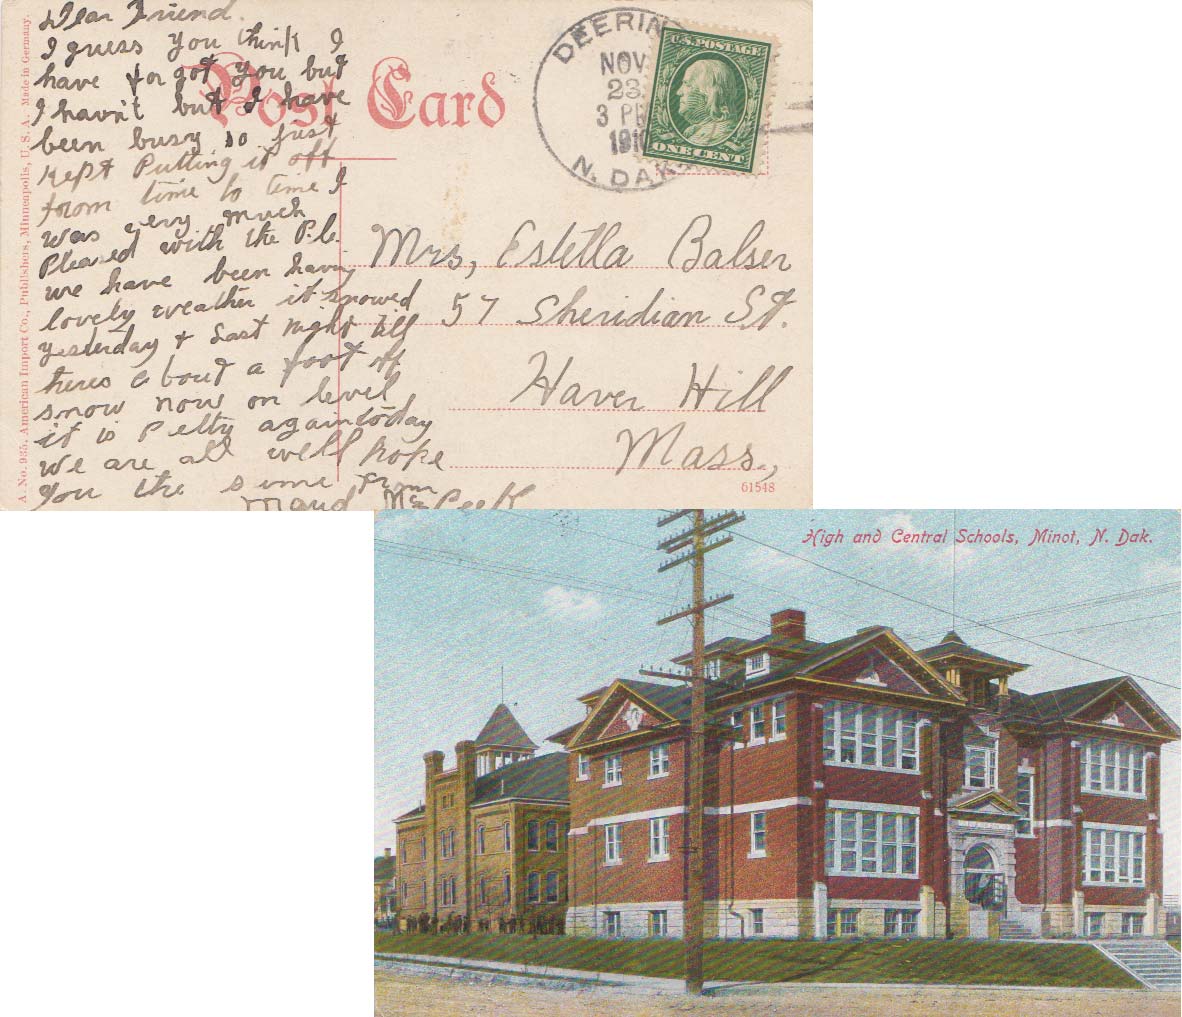 Dear Friend.
I guess you think I
have forgot you but
I havn't but I have
been busy so just
kept Putting it off
from time to time I
was very much
Pleased with the P.c.
we have been having
lovely weather it snowed
yesterday & Last night till
theres about a foot of
snow now on level
it is Pelty again today
we are all well hope
you the same From
Maud McPeek
A. No. 935. American Import Co., Publishers, Minneapolis, U. S. A. Made in Germany.
Post Card
DEERING
NOV
23
3 PM
1910
N. DAK.
U.S. POSTAGE
ONE CENT
Mrs, Estella Balser
57 Sheridian St.
Haver Hill
Mass.,
61548
High and Central Schools, Minot, N. Dak.